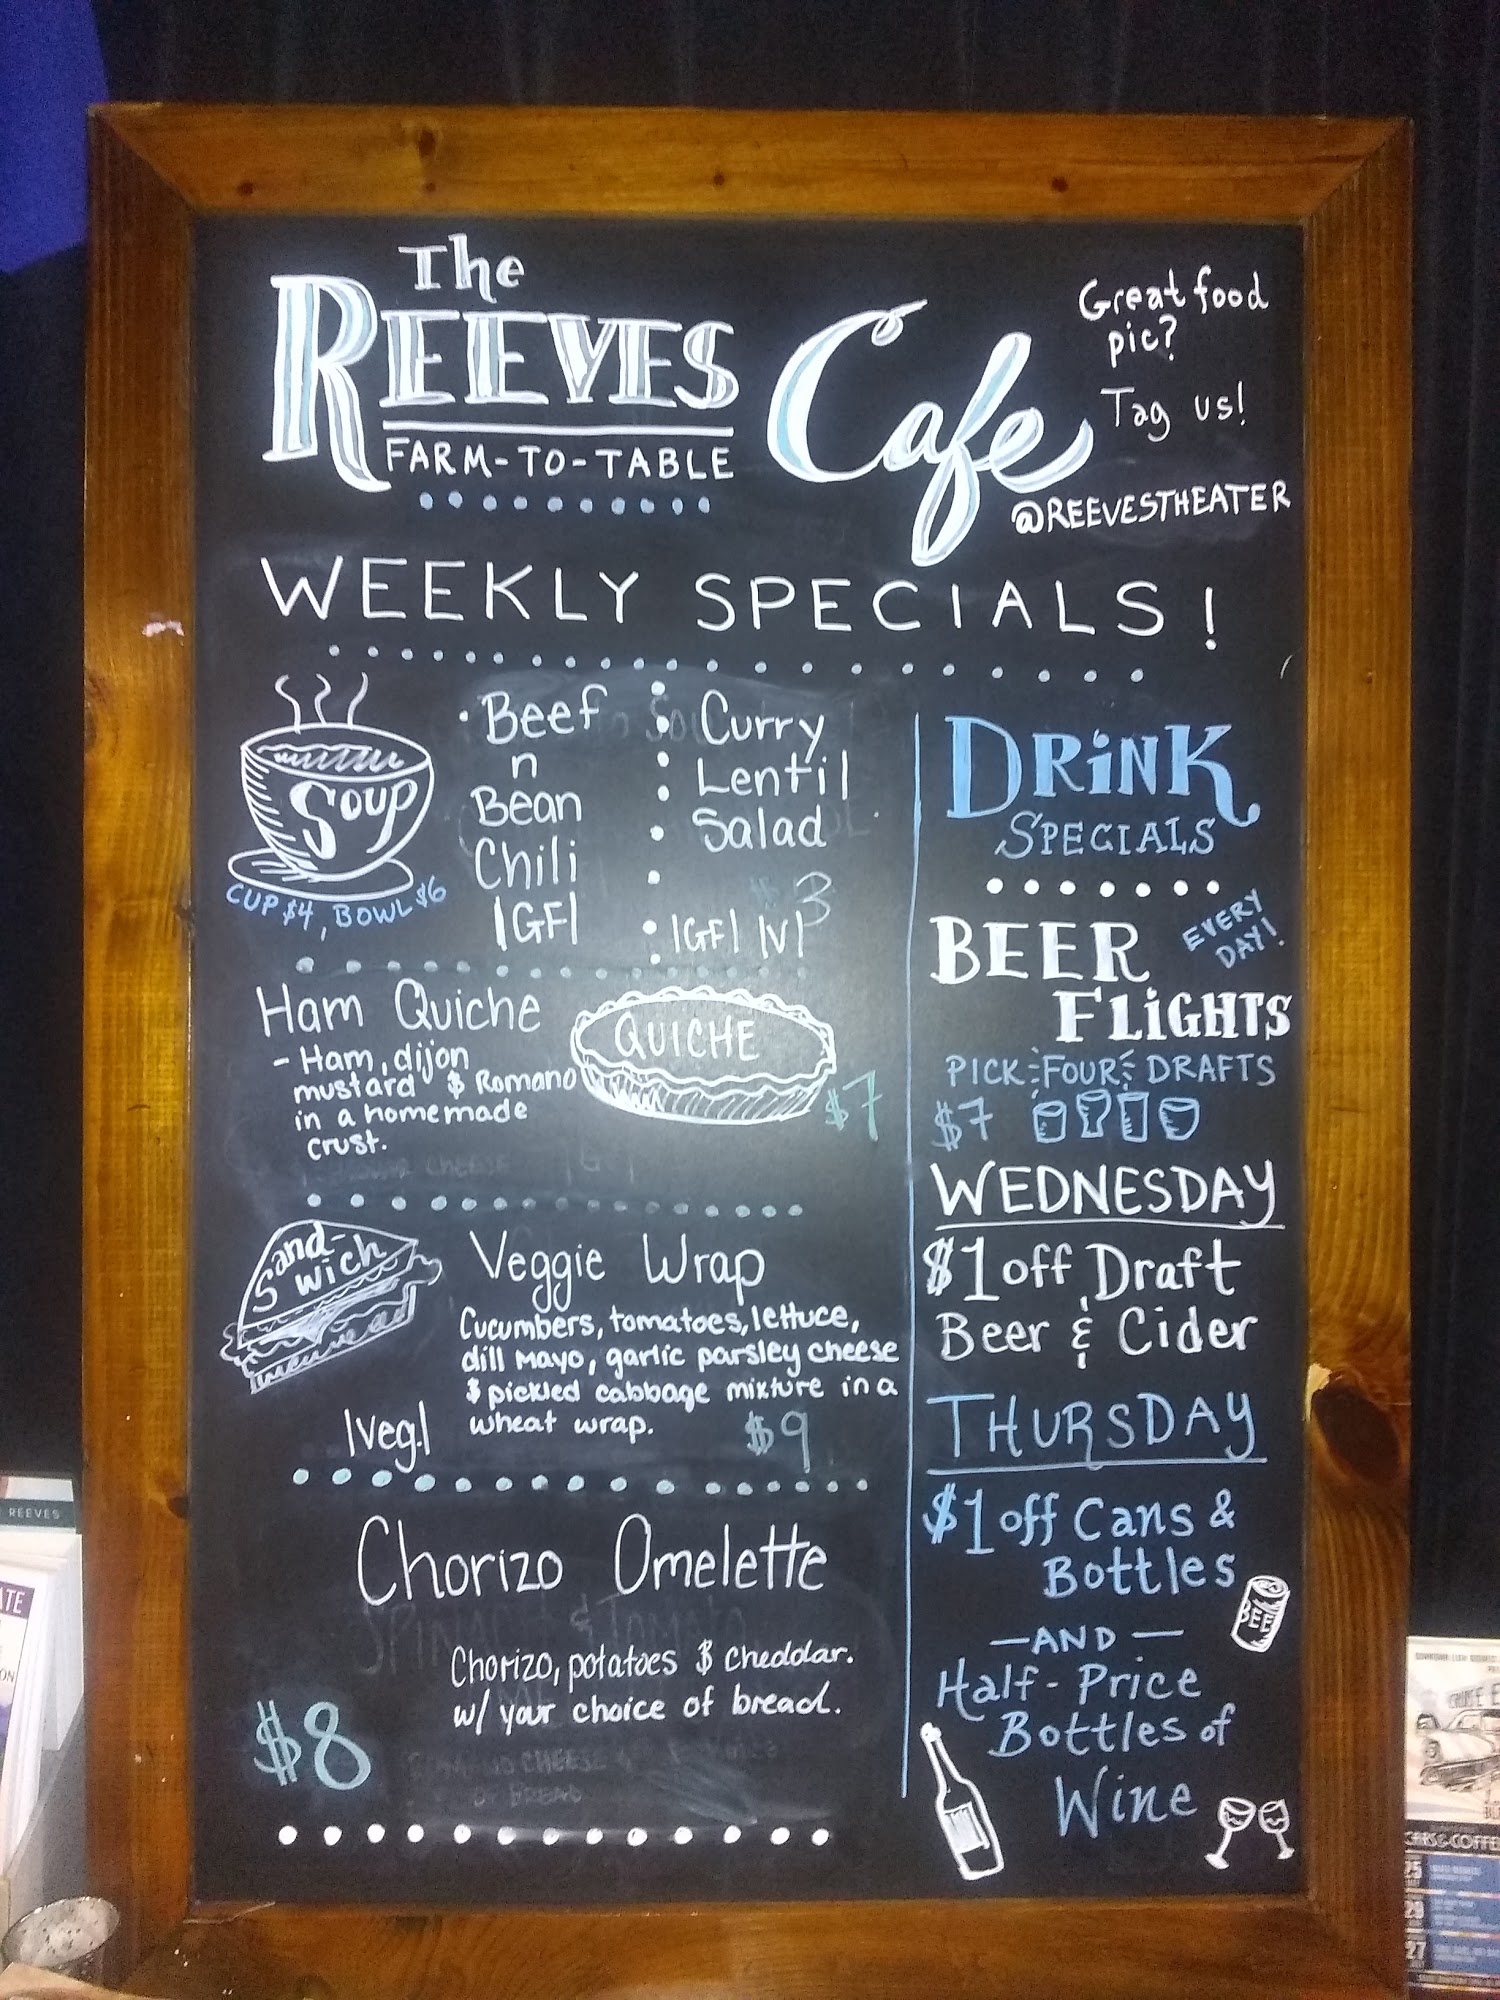 The
REEVES
FARM-TO-TABLE
Cafe
Great food
pic?
Tag us!
@REEVESTHEATER
WEEKLY SPECIALS!
Soup
CUP $4, BOWL $6
Beef
n
Bean
Chili
|GF|
Curry
Lentil
Salad
$3
|GF| |V|
Ham Quiche
- Ham, dijon
mustard & Romano
in a homemade
crust.
QUICHE
$7
Sand-
wich
|veg.|
Veggie Wrap
Cucumbers, tomatoes, lettuce,
dill mayo, garlic parsley cheese
& pickled cabbage mixture in a
wheat wrap.
$9
Chorizo Omelette
Chorizo, potatoes & cheddar.
w/ your choice of bread.
$8
DRiNK
SPECIALS
BEER
FLiGHTS
EVERY
DAY!
PICK FOUR DRAFTS
$7
WEDNESDAY
$1 off Draft
Beer & Cider
THURSDAY
$1 off Cans &
Bottles
BEE
—AND—
Half-Price
Bottles of
Wine
REEVES